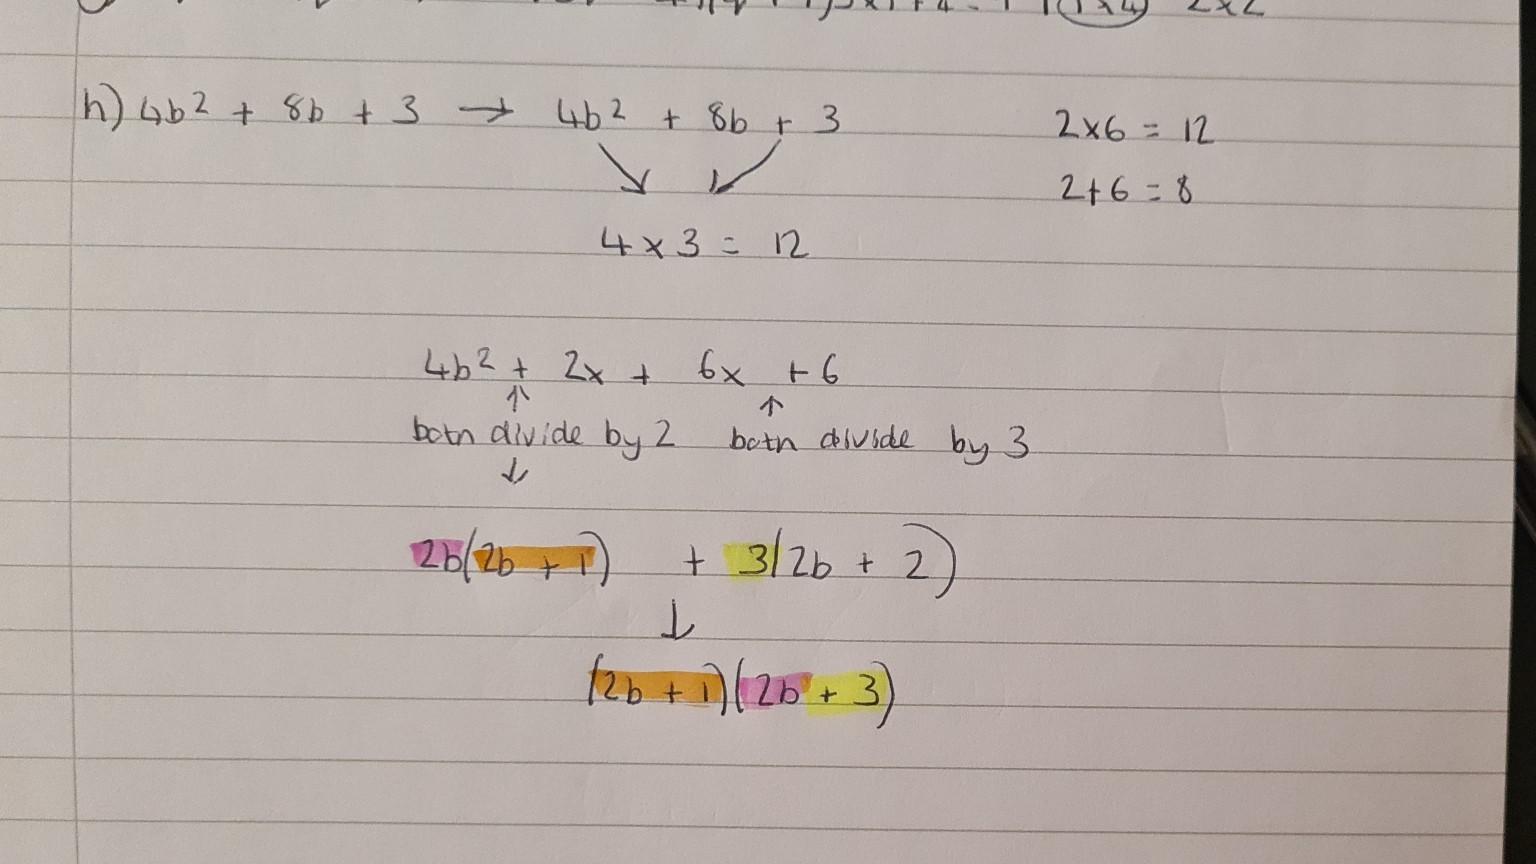 h) 4b² + 8b + 3 → 4b² + 8b + 3
2x6 = 12
2+6 = 8
4 x 3 = 12
4b² + 2x + 6x + 6
both divide by 2 both divide by 3
2b(2b + 1) + 3(2b + 2)
(2b + 1)(2b + 3)